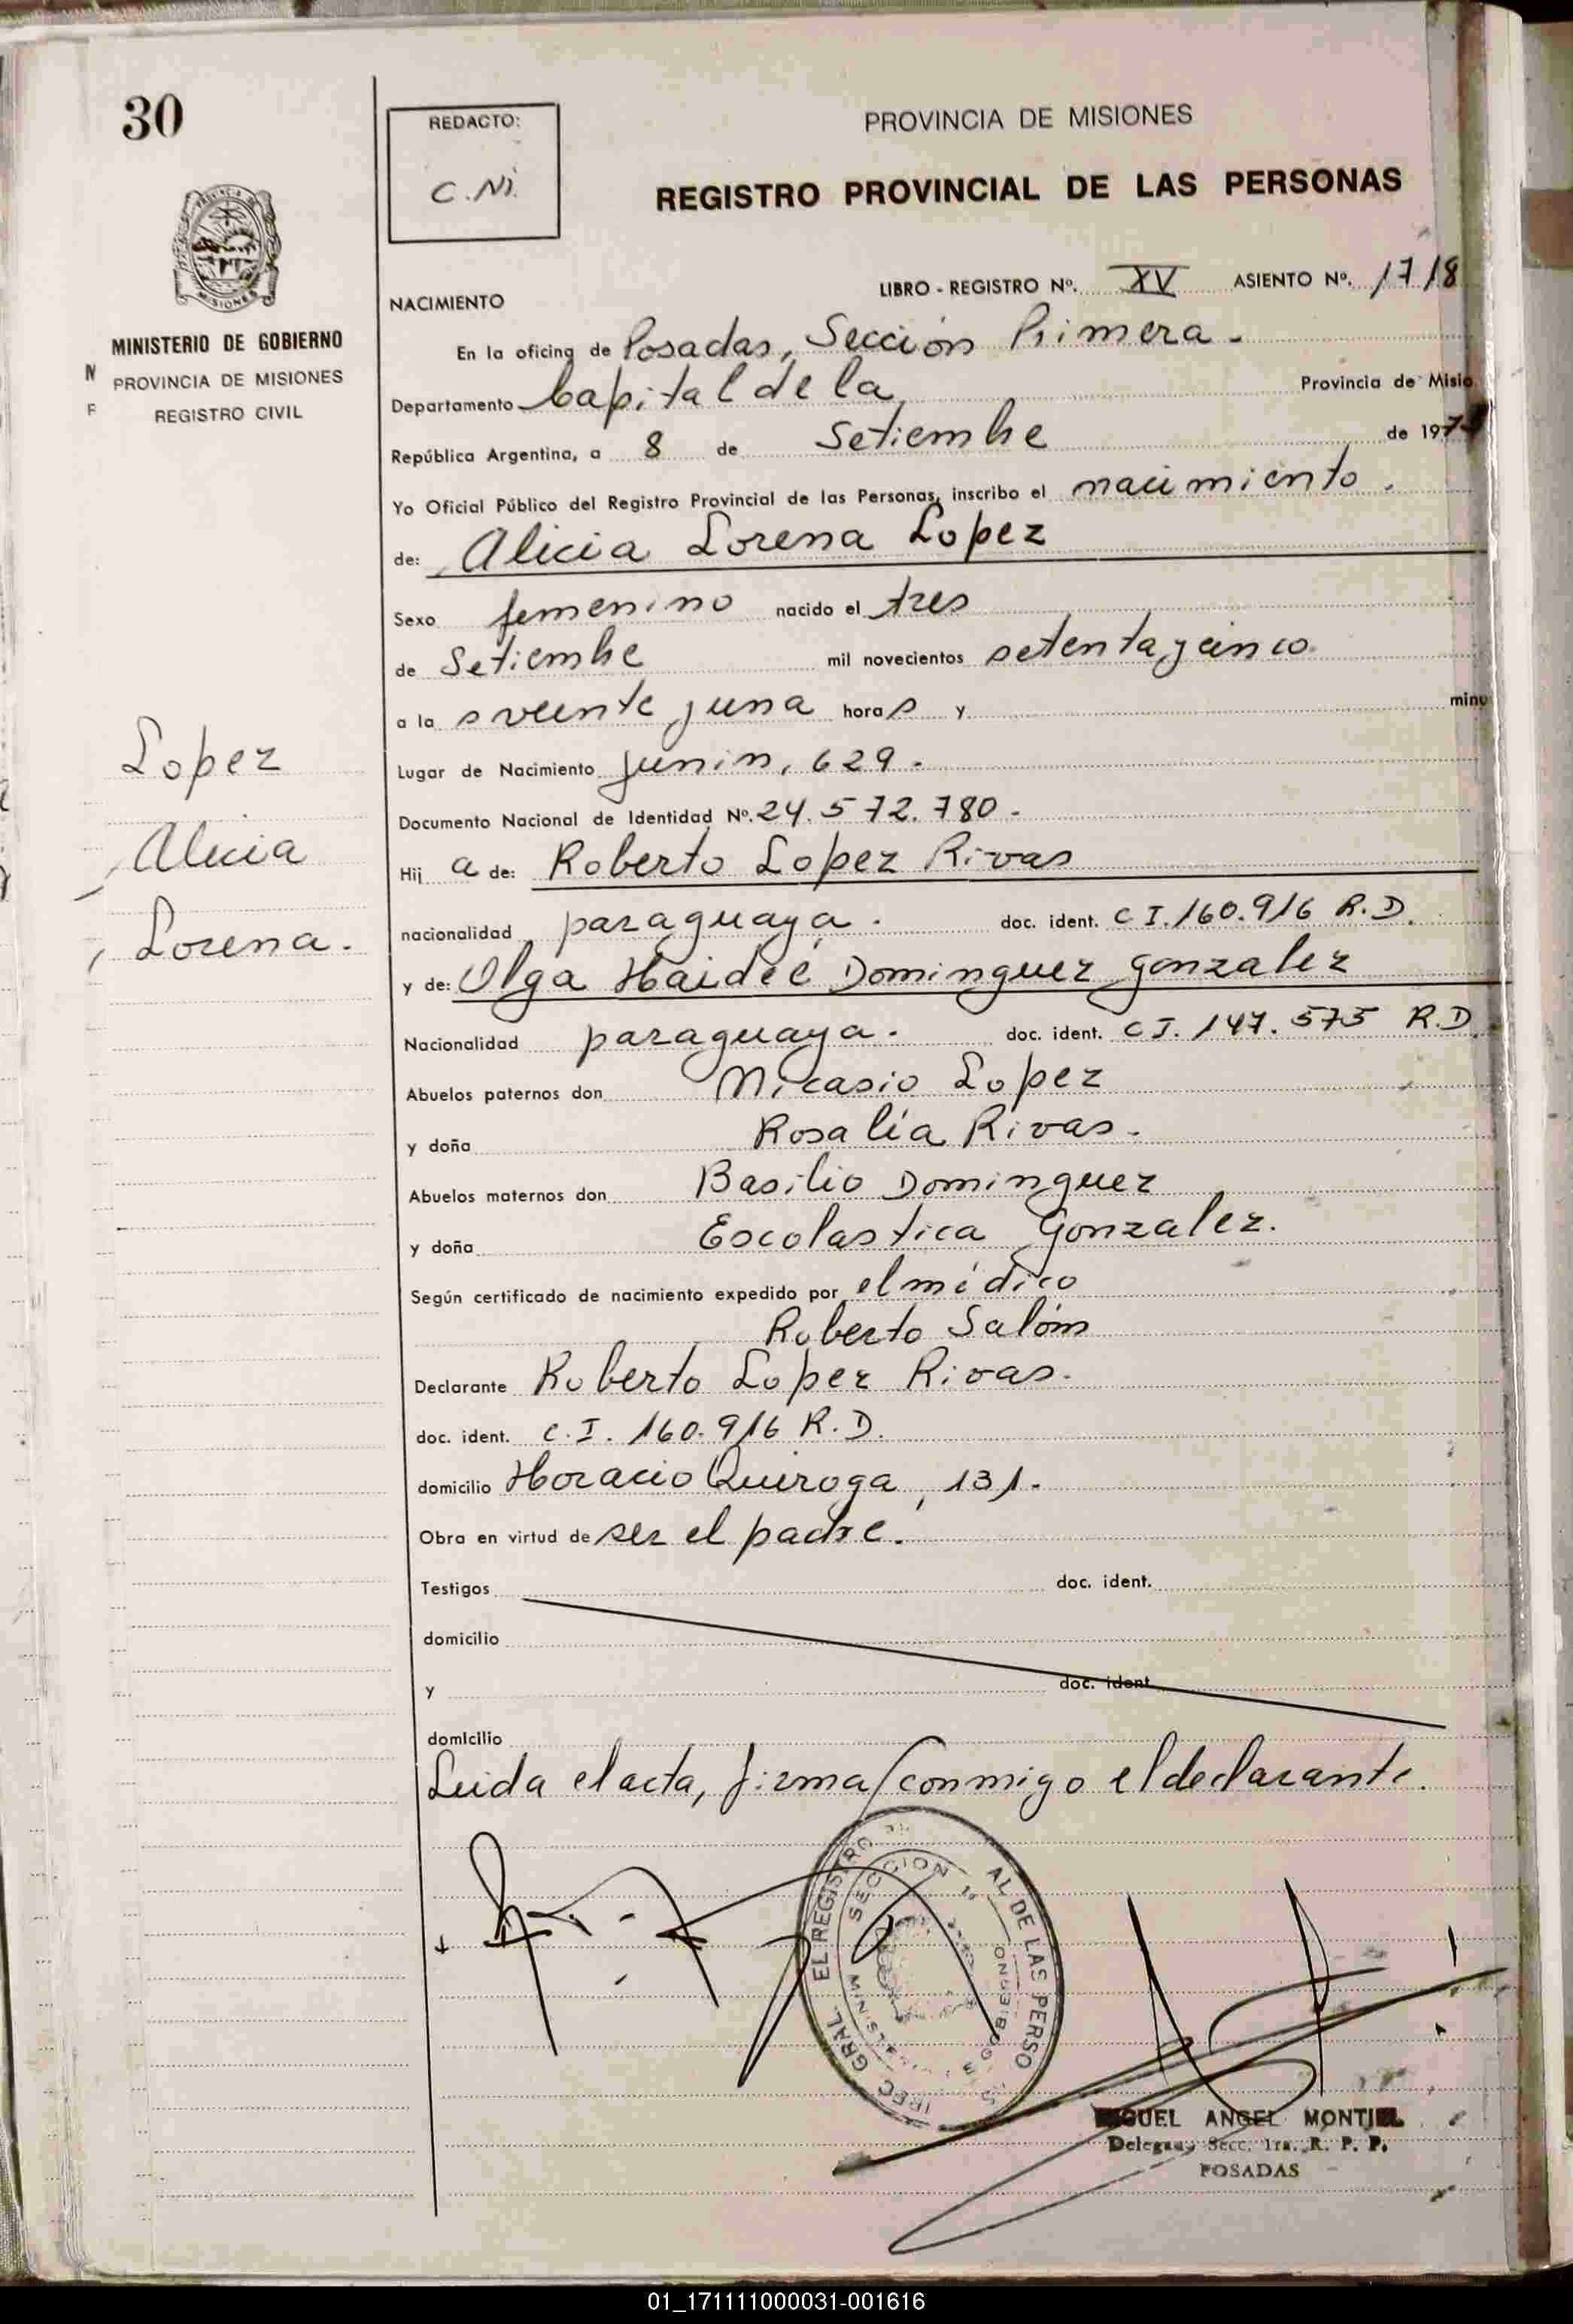 30
REDACTO:
C. Ni.
PROVINCIA DE MISIONES
REGISTRO PROVINCIAL DE LAS PERSONAS
LIBRO - REGISTRO Nº. XV ASIENTO Nº. 1718
NACIMIENTO
MINISTERIO DE GOBIERNO
PROVINCIA DE MISIONES
REGISTRO CIVIL
En la oficina de Posadas, Sección Primera -
Departamento Capital de la Provincia de Misio
República Argentina, a 8 de Setiembre de 197
Yo Oficial Público del Registro Provincial de las Personas, inscribo el nacimiento.
de: Alicia Lorena Lopez
Sexo femenino nacido el tres
de Setiembre mil novecientos setenta y cinco
a la s veinte y una hora s y minu
Lugar de Nacimiento Junin, 629.
Documento Nacional de Identidad Nº. 24.572.780 -
Hij a de: Roberto Lopez Rivas
nacionalidad paraguaya. doc. ident. C I. 160.916 R.D.
y de: Olga Haideé Dominguez Gonzalez
Nacionalidad paraguaya. doc. ident. C I. 147.575 R.D
Abuelos paternos don Nicasio Lopez
y doña Rosalía Rivas.
Abuelos maternos don Basilio Dominguez
y doña Escolastica Gonzalez.
Según certificado de nacimiento expedido por el médico
Roberto Salóm
Declarante Roberto Lopez Rivas.
doc. ident. C.I. 160.916 R.D.
domicilio Horacio Quiroga, 131.
Obra en virtud de ser el padre.
Testigos doc. ident.
domicilio
y doc. ident
domicilio
Leida el acta, firma conmigo el declarante.
Lopez
Alicia
Lorena.
GRAL. EL REGISTRO AL DE LAS PERSO
SECCION 1ª
GOBIERNO
GUEL ANGEL MONTIEL
Secc. 1ra. R. P. P.
POSADAS
01_171111000031-001616